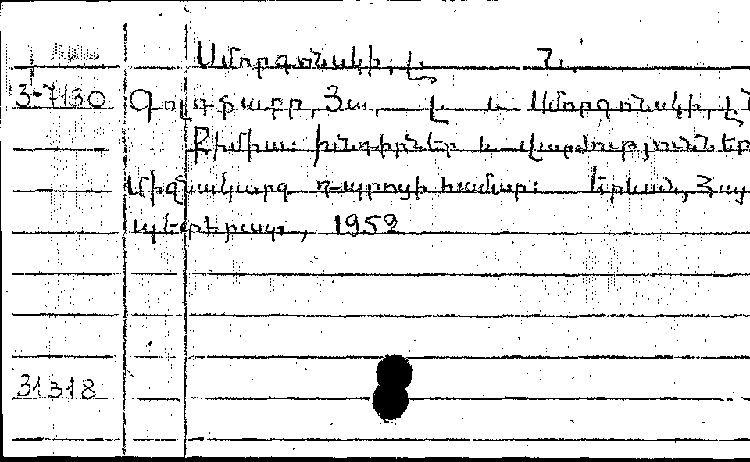 Սմորգոնսկի, Լ. Դ.
3-7130 Գոլդֆարբ, Յա. Լ. և Սմորգոնսկի, Լ
Քիմիա: խնդիրներ և վարժություններ
միջնակարգ դպրոցի համար: Երևան, Հայ
պետհրատ, 1952
31318